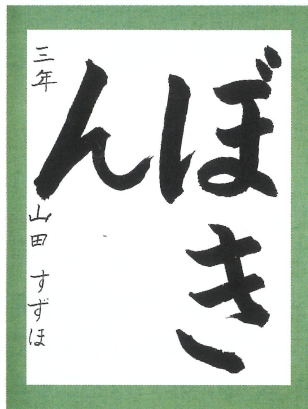 ぼき
ん
三年 山田 すずほ